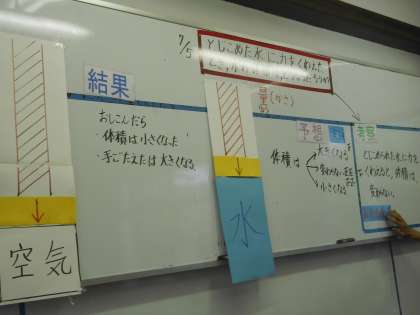 7/5
とじこめた水に力をくわえた
結果
おしこんだら
・体積は小さくなった
・手ごたえは大きくなる。
空気
(かさ)
予想
体積は
大きくなる
小さくなる
水
考察
とじこめられた水に力を
くわえると、体積は
変わらない。